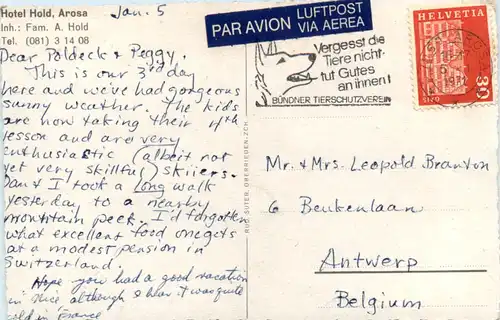 Hotel Hold, Arosa
Inh.: Fam. A. Hold
Tel. (081) 3 14 08
Jan. 5
Dear Poldeck & Peggy.
This is our 3rd day
here and we've had gorgeous
sunny weather. The kids
are now taking their 4th
lesson and are very
enthusiastic (albeit not
yet very skillful) skiiers.
Dan & I took a long walk
yesterday to a nearby
mountain peak. I'd forgotten
what excellent food one gets
at a modest pension in
Switzerland.
Hope you had a good vacation
in Nice although I hear it was quite
cold in France
RUD. SUTER, OBERRIEDEN-ZCH.
PAR AVION LUFTPOST
VIA AEREA
Vergesst die
Tiere nicht-
tut Gutes
an ihnen!
BÜNDNER TIERSCHUTZVEREIN
HELVETIA
30
Mr. & Mrs. Leopold Branton
6 Beukenlaan
Antwerp
Belgium